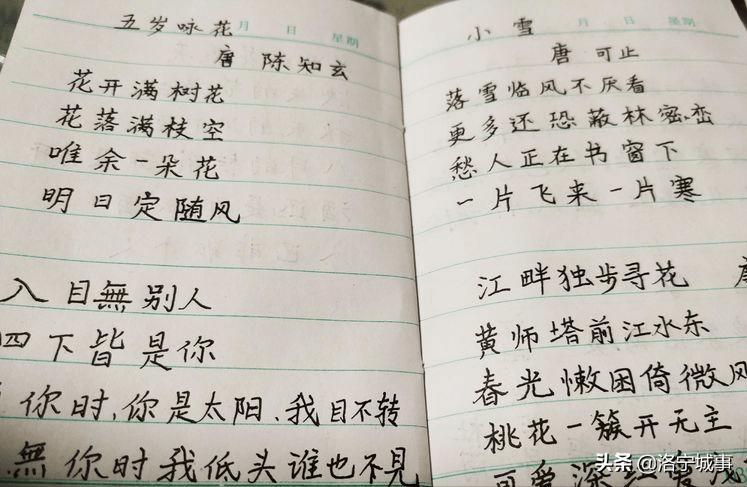 五岁咏花 月 日 星期
唐 陈知玄
花开满树花
花落满枝空
唯余一朵花
明日定随风
入目無别人
四下皆是你
你时,你是太阳、我目不转
無你时我低头谁也不见
小雪 月 日 星期
唐 可止
落雪临风不厌看
更多还恐蔽林密峦
愁人正在书窗下
一片飞来一片寒
江畔独步寻花
黄师塔前江水东
春光懒困倚微风
桃花一簇开无主
可爱深红爱浅
头条 @洛宁城事